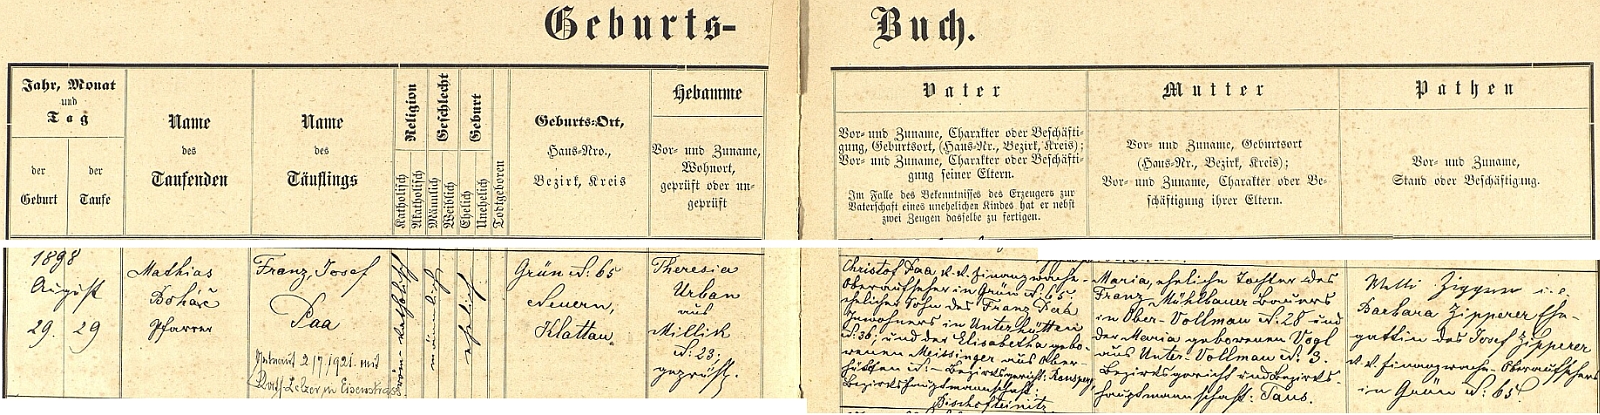 Geburts-
Buch.
Jahr, Monat
und
Tag
der
Geburt
der
Taufe
Name
des
Taufenden
Name
des
Täuflings
Religion
Katholisch
Akatholisch
Geschlecht
Männlich
Weiblich
Geburt
Ehelich
Unehelich
Todtgeboren
Geburts-Ort,
Haus-Nro.,
Bezirk, Kreis
Hebamme
Vor- und Zuname,
Wohnort,
geprüft oder un-
geprüft
Vater
Vor- und Zuname, Charakter oder Beschäfti-
gung, Geburtsort, (Haus-Nr., Bezirk, Kreis);
Vor- und Zuname, Charakter oder Beschäfti-
gung seiner Eltern.
Im Falle des Bekenntnisses des Erzeugers zur
Vaterschaft eines unehelichen Kindes hat er nebst
zwei Zeugen dasselbe zu fertigen.
Mutter
Vor- und Zuname, Geburtsort
(Haus-Nr., Bezirk, Kreis);
Vor- und Zuname, Charakter oder Be-
schäftigung ihrer Eltern.
Pathen
Vor- und Zuname,
Stand oder Beschäftigung.
1898
August
29. 29
Mathias
Boháč
Pfarrer
Franz Josef
Paa
Getraut 2/7 1921 mit
in Eisenstrass.
röm. katholisch
männlich
ehelich
Grün N: 65
Neuern,
Klattau.
Theresia
Urban
aus
Millik
N: 23;
geprüft.
Christof Paa k. k. Finanzwache-
Oberaufseher in Grün N: 65.
ehelicher Sohn des Franz Paa
Inwohners in Unterhütten
N: 36; und der Elisabetha gebo-
renen Meissinger aus Ober-
hütten Bezirksgericht: Ronsperg,
Bezirkshauptmannschaft:
Bischofteinitz
Maria, eheliche Tochter des
Franz Mühlbauer Bauers
in Ober-Vollmau N: 28 und
der Maria geborenen Vogl
aus Unter-Vollmau N: 3.
Bezirksgericht und Bezirks-
hauptmannschaft: Taus.
Barbara Zipperer Ehe-
gattin des Josef Zipperer
k. k. Finanzwache-Oberaufsehers
in Grün N: 65.